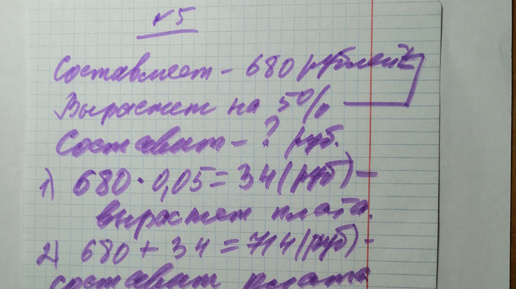 №5
Составляет - 680 рублей
Вырастет на 5%
Составит - ? руб.
1) 680 · 0,05 = 34 (руб) -
вырастет плата.
2) 680 + 34 = 714 (руб) -
составит плата